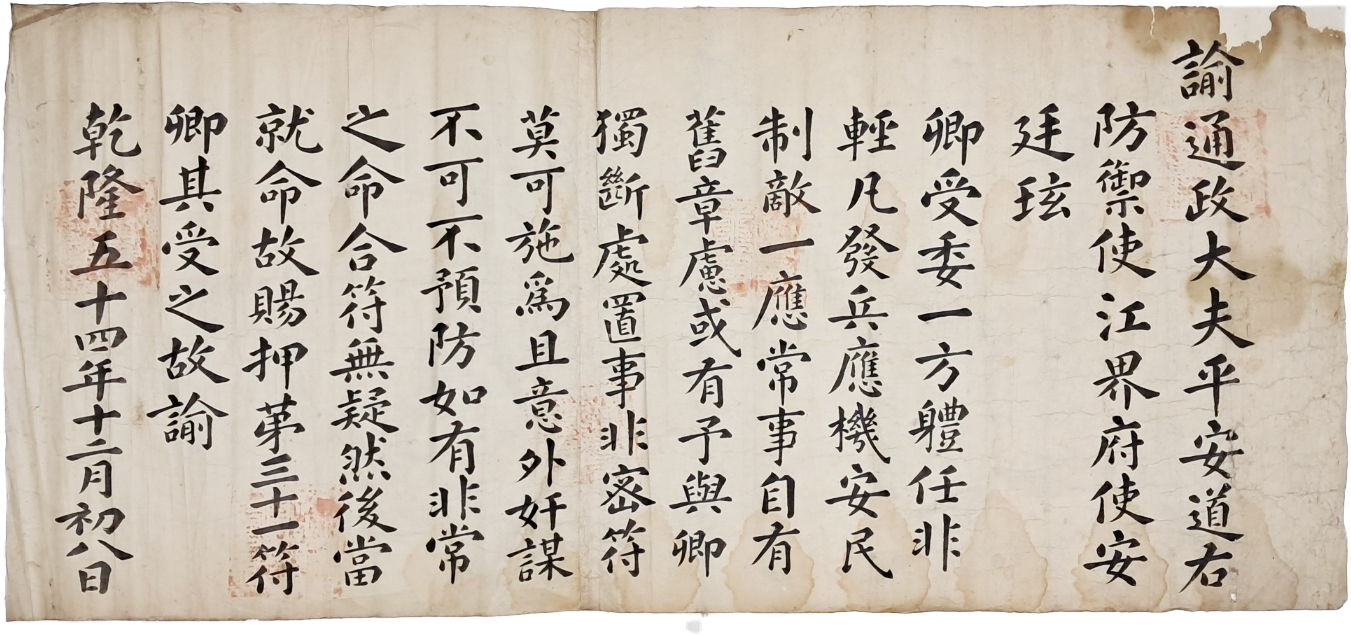 諭通政大夫平安道右
防禦使江界府使安
廷玹
卿受委一方體任非
輕凡發兵應機安民
制敵一應常事自有
舊章慮或有予與卿
獨斷處置事非密符
莫可施爲且意外奸謀
不可不預防如有非常
之命合符無疑然後當
就命故賜押第三十一符
卿其受之故諭
乾隆五十四年十二月初八日